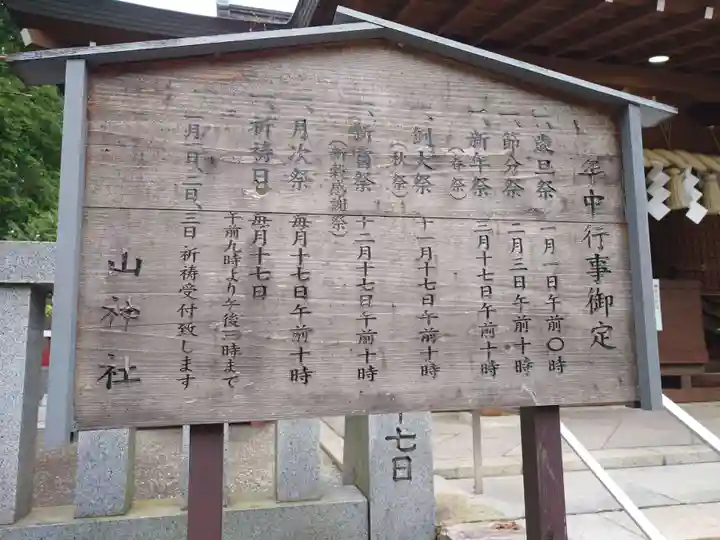 年中行事御定
一、歳旦祭 一月一日午前〇時
一、節分祭 二月三日午前十時
一、新年祭 二月十七日午前十時
（春祭）
一、例大祭 十一月十七日午前十時
（秋祭）
一、新嘗祭 十二月十七日午前十時
（新穀感謝祭）
一、月次祭 毎月十七日午前十時
一、祈祷日 毎月十七日
午前九時より午後二時まで
一月一日、二日、三日 祈祷受付致します
山神社
十七日